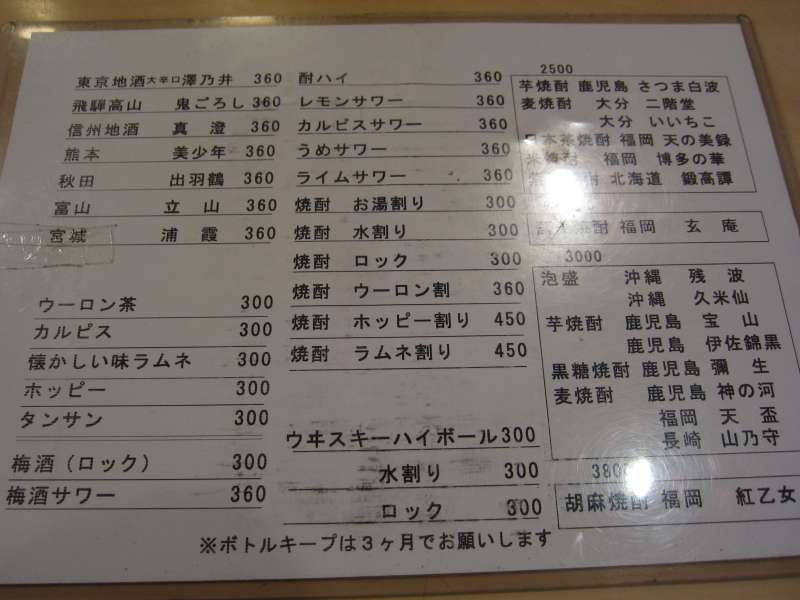 東京地酒大辛口澤乃井 360
飛騨高山 鬼ごろし 360
信州地酒 真澄 360
熊本 美少年 360
秋田 出羽鶴 360
富山 立山 360
宮城 浦霞 360
ウーロン茶 300
カルピス 300
懐かしい味ラムネ 300
ホッピー 300
タンサン 300
梅酒(ロック) 300
梅酒サワー 360
酎ハイ 360
レモンサワー 360
カルピスサワー 360
うめサワー 360
ライムサワー 360
焼酎 お湯割り 300
焼酎 水割り 300
焼酎 ロック 300
焼酎 ウーロン割 360
焼酎 ホッピー割り 450
焼酎 ラムネ割り 450
ウヰスキーハイボール300
水割り 300
ロック 300
2500
芋焼酎 鹿児島 さつま白波
麦焼酎 大分 二階堂
大分 いいちこ
日本茶焼酎 福岡 天の美録
米焼酎 福岡 博多の華
酎 北海道 鍛高譚
焼酎 福岡 玄庵
3000
泡盛 沖縄 残波
沖縄 久米仙
芋焼酎 鹿児島 宝山
鹿児島 伊佐錦黒
黒糖焼酎 鹿児島 彌生
麦焼酎 鹿児島 神の河
福岡 天盃
長崎 山乃守
3800
胡麻焼酎 福岡 紅乙女
※ボトルキープは3ヶ月でお願いします